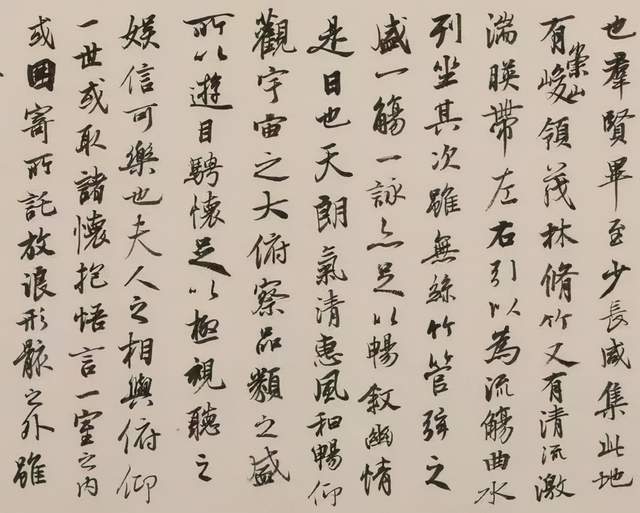 也羣賢畢至少長咸集此地
有崇山峻領茂林脩竹又有清流激
湍暎帶左右引以為流觴曲水
列坐其次雖無絲竹管弦之
盛一觴一詠亦足以暢敘幽情
是日也天朗氣清惠風和暢仰
觀宇宙之大俯察品類之盛
所以遊目騁懷足以極視聽之
娛信可樂也夫人之相與俯仰
一世或取諸懷抱悟言一室之内
或因寄所託放浪形骸之外雖